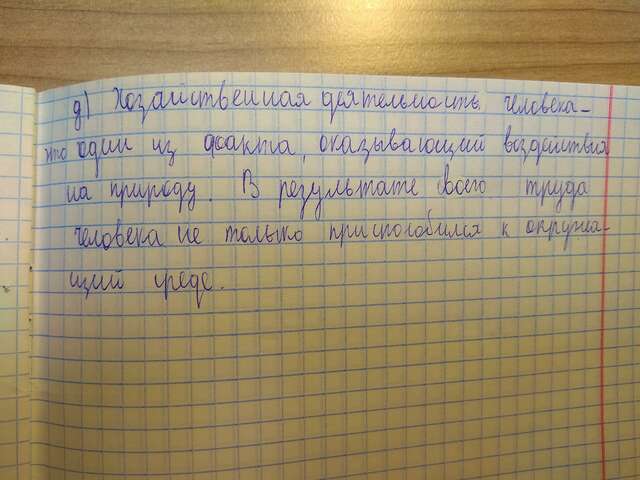 д) Хозайственная деятельность человека-
это один из факта, оказывающий воздействия
на природу. В результате всего труда
человека не только приспособился к окружа-
щий среде.